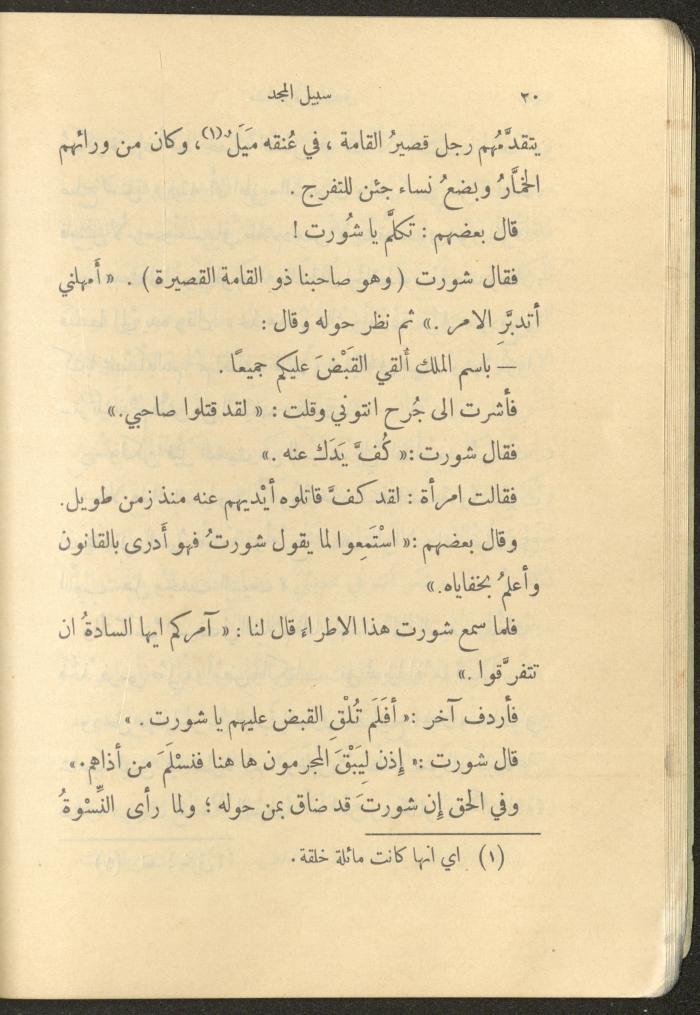 ٢٠ سبيل المجد
يتقدَّمُهم رجل قصيرُ القامة ، في عُنقه مَيَلٌ (١) ، وكان من ورائهم
الخمَّارُ وبضعُ نساء جئن للتفرج .
قال بعضهم : تكلَّم يا شُورت !
فقال شورت ( وهو صاحبنا ذو القامة القصيرة ) . « أَمهلني
أتدبَّرِ الامر .» ثم نظر حوله وقال :
— باسم الملك أُلقي القَبْضَ عليكم جميعًا .
فأشرت الى جُرح انتوني وقلت : « لقد قتلوا صاحبي .»
فقال شورت :« كُفَّ يَدَك عنه .»
فقالت امرأة : لقد كفَّ قاتلوه أيْديهم عنه منذ زمن طويل.
وقال بعضهم :« اسْتَمِعوا لما يقول شورتُ فهو أَدرى بالقانون
وأعلمُ بخفاياه.»
فلما سمع شورت هذا الاطراء قال لنا : « آمركم ايها السادةُ ان
تتفرَّقوا .»
فأردف آخر :« أفَلَم تُلْقِ القبض عليهم يا شورت . »
قال شورت :« إِذن لِيَبْقَ المجرمون ها هنا فنسْلَمَ من أذاهم.»
وفي الحق إِن شورتَ قد ضاق بمن حوله ؛ ولما رأى النِّسْوةُ
(١) اي انها كانت مائلة خلقة .